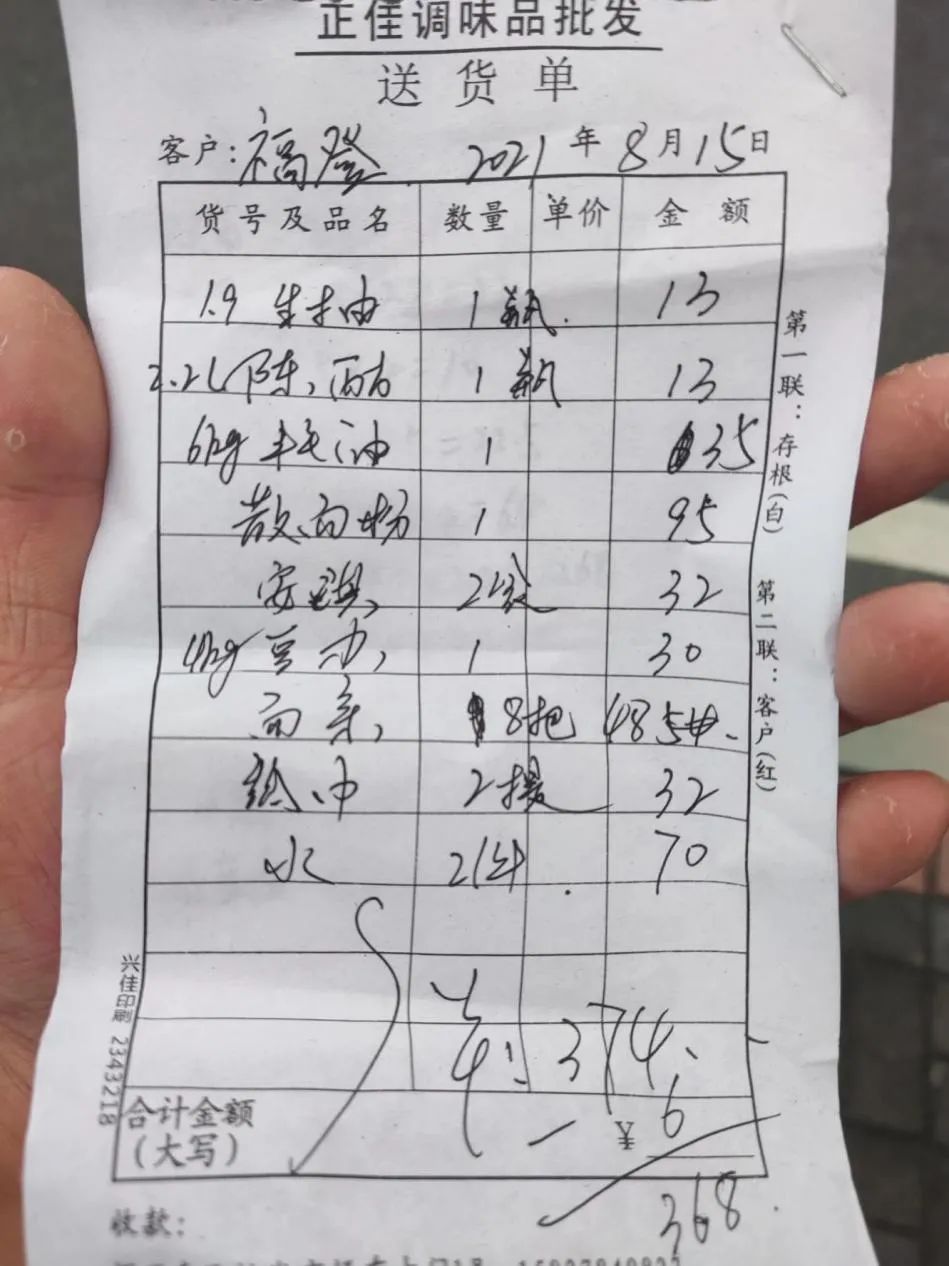 正佳调味品批发
送货单
客户: 福登 2021年8月15日
货号及品名 数量 单价 金额
1.9 生抽 1瓶. 13
2.2L 陈醋 1瓶 13
6kg 耗油 1 35
散面粉 1 95
安琪 2袋 32
4kg 豆办 1 30
面条 8把 48 54
纸巾 2提 32
水 2件 70
374
合计金额
(大写)
— ¥ 6
368.
收款:
第一联:存根(白) 第二联:客户(红)
兴佳印刷 2343218